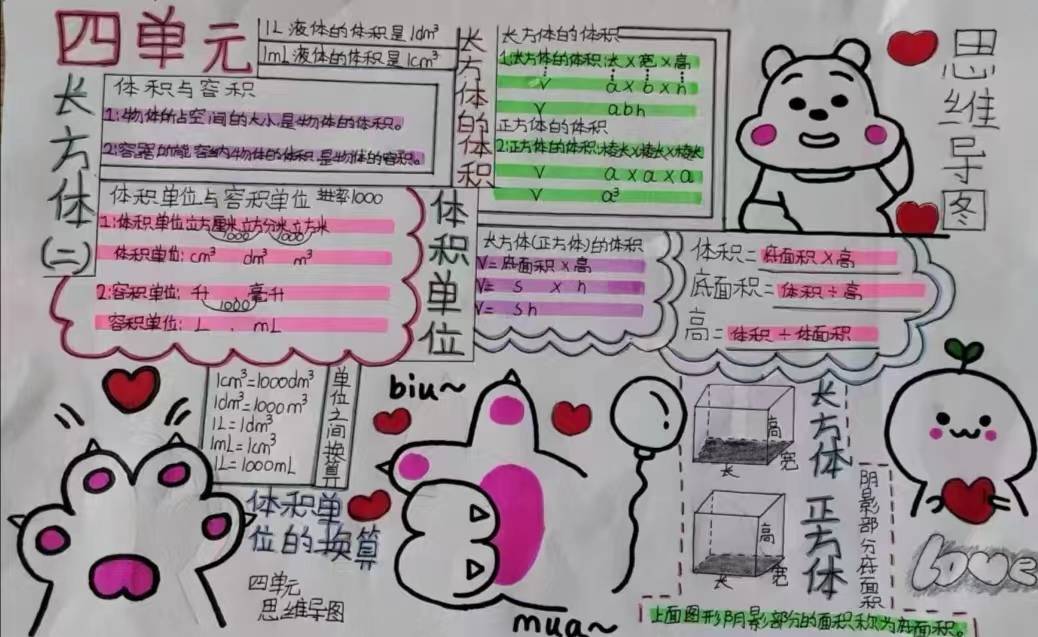 四单元
长方体(二)
1L液体的体积是1dm³
1mL液体的体积是1cm³
体积与容积
1:物体所占空间的大小是物体的体积。
2:容器所能容纳物体的体积是物体的容积。
长方体的体积
长方体的体积
1:长方体的体积:长×宽×高
V a×b×h
abh
正方体的体积
2:正方体的体积:棱长×棱长×棱长
V a×a×a
V a³
思维导图
体积单位与容积单位 进率1000
1:体积单位立方厘米立方分米立方米
1000 1000
体积单位:cm³ dm³ m³
2:容积单位:升 毫升
1000
容积单位:L , mL
体积单位
长方体(正方体)的体积
V=底面积×高
V= s × h
V= sh
体积=底面积×高
底面积=体积÷高
高=体积÷体面积
1cm³=1000dm³
1dm³=1000m³
1L=1dm³
1mL=1cm³
1L=1000mL
单位之间换算
体积单
位的换算
四单元
思维导图
biu~
mua~
长方体
高
宽
长
正方体
高
宽
长
阴影部分底面积
上面图形阴影部分的面积称为底面积。
Love